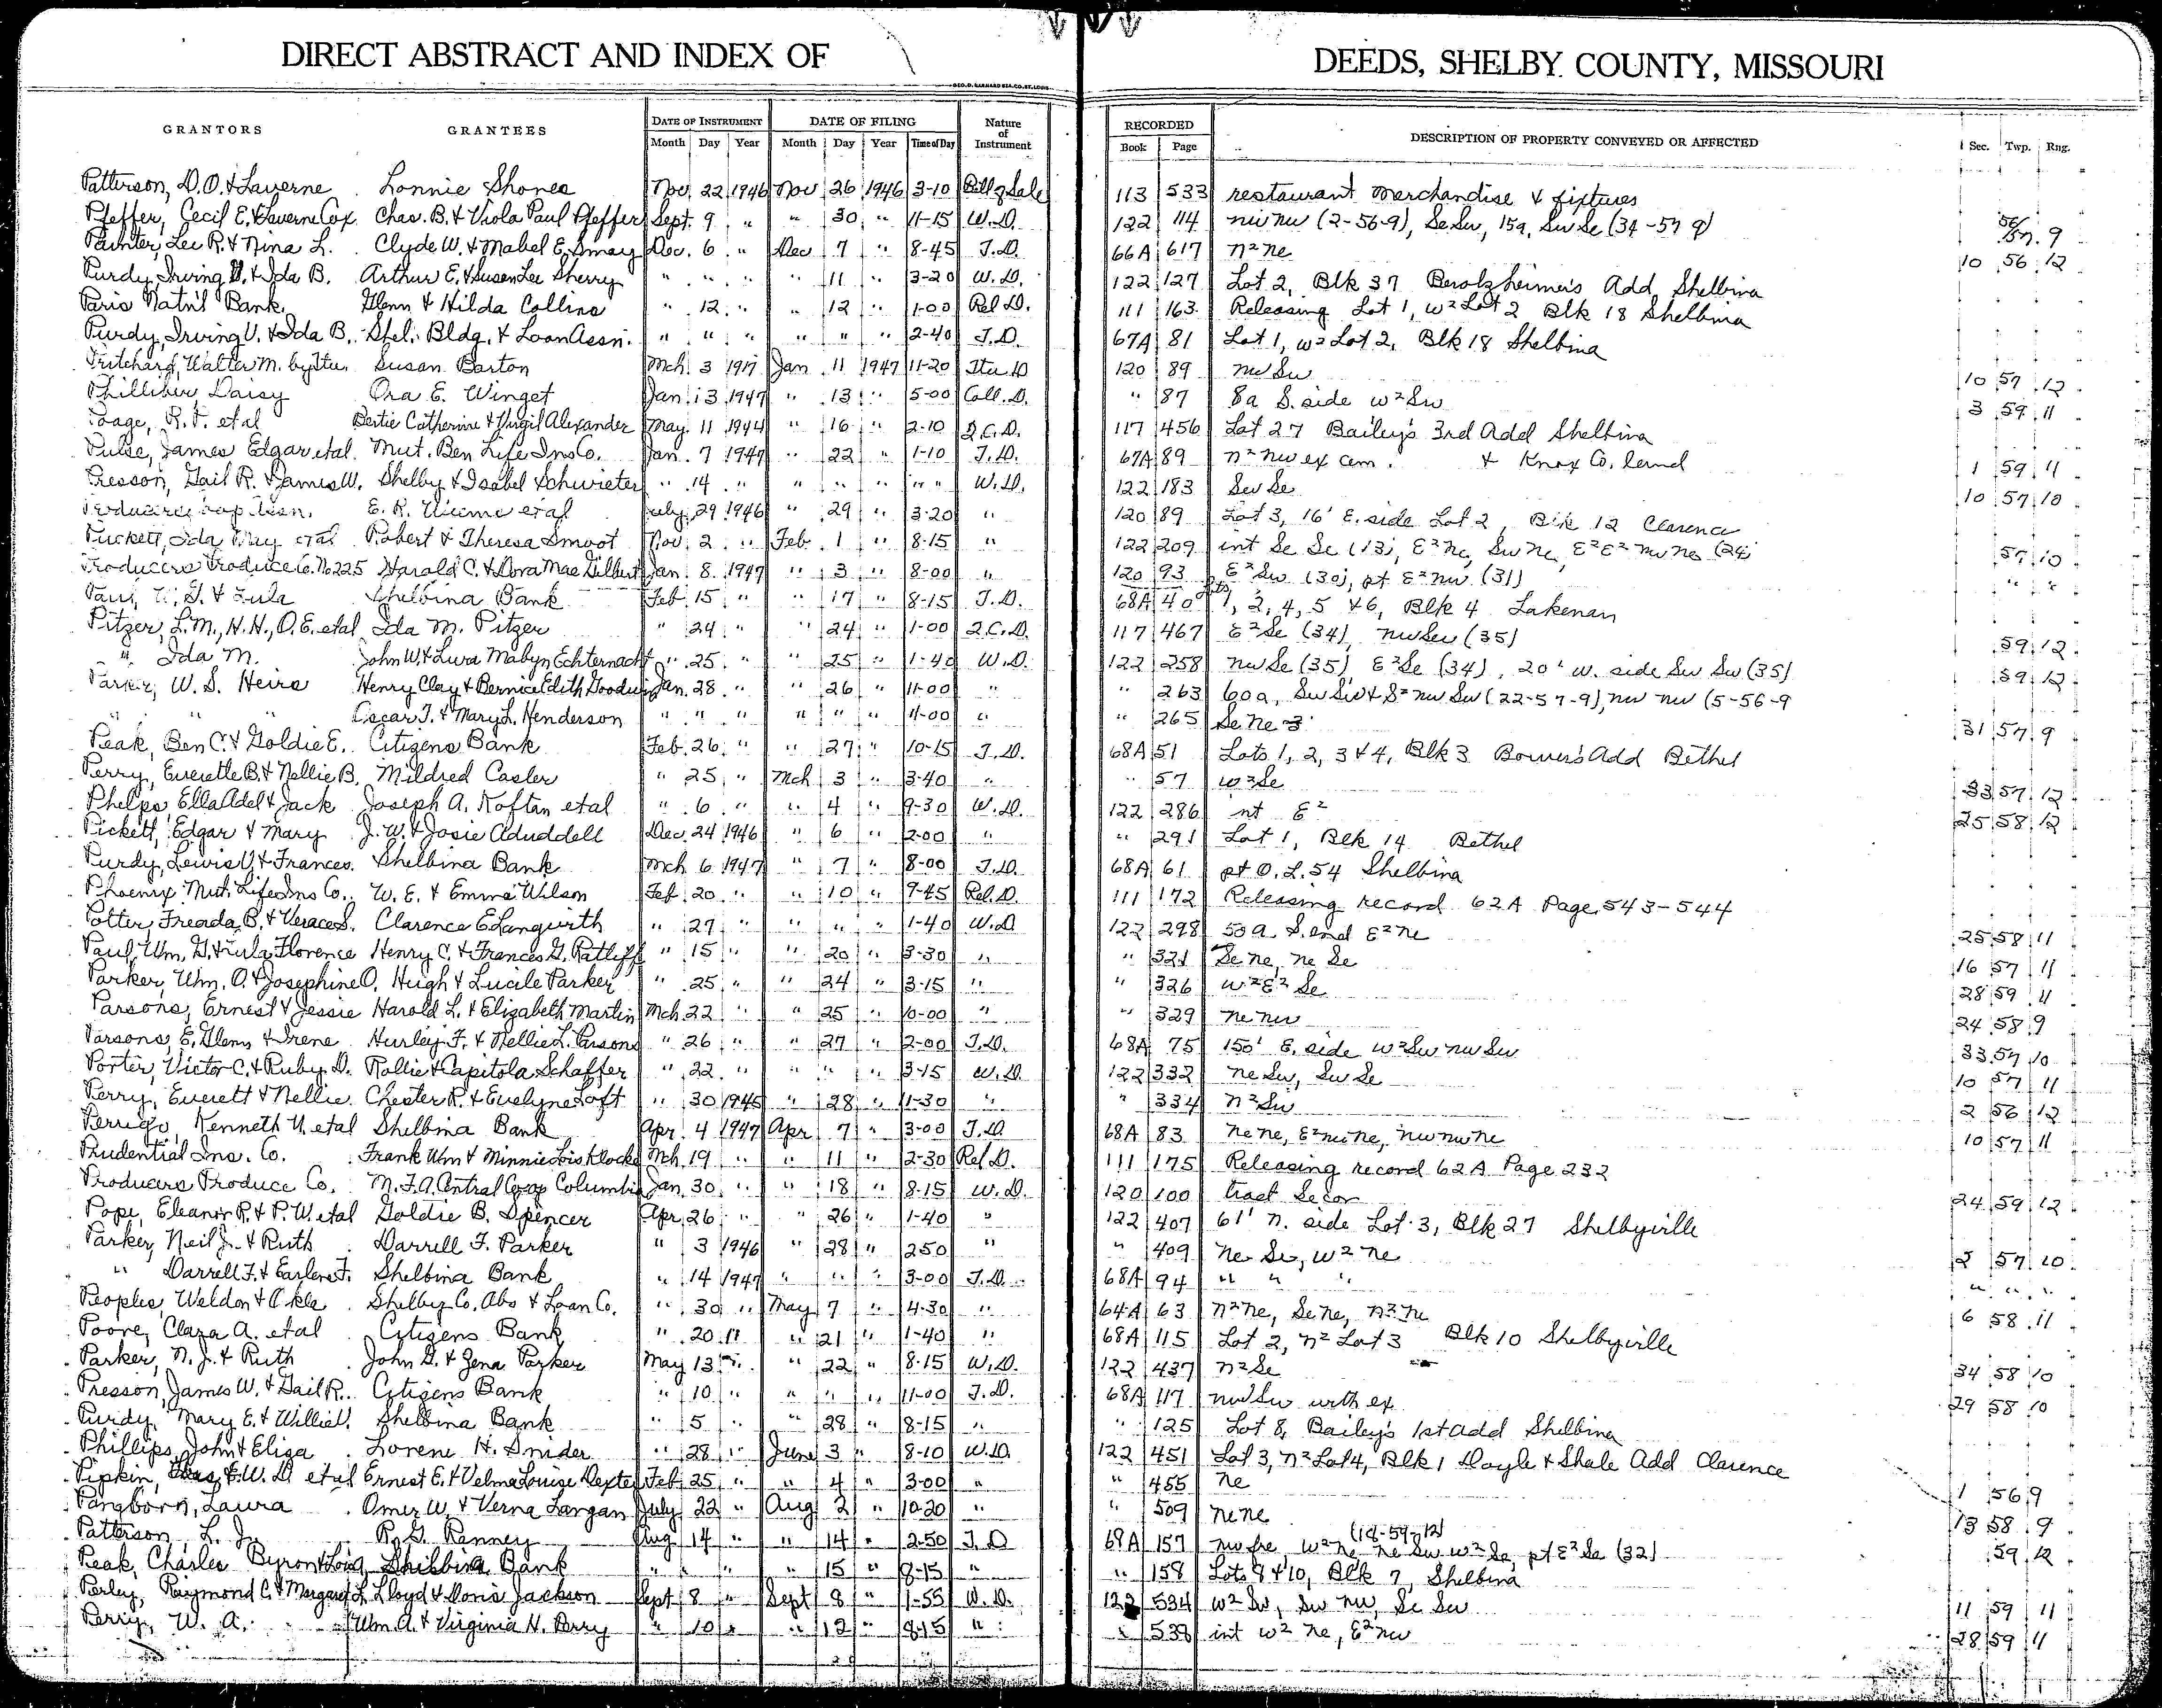 DIRECT ABSTRACT AND INDEX OF DEEDS, SHELBY COUNTY, MISSOURI
GEO. D. BARNARD STA. CO. ST. LOUIS
GRANTORS GRANTEES DATE OF INSTRUMENT DATE OF FILING Nature of Instrument RECORDED DESCRIPTION OF PROPERTY CONVEYED OR AFFECTED Sec. Twp. Rng.
Month Day Year Month Day Year Time of Day Book Page
Patterson, D.O. & Laverne Lonnie Shores Nov. 22 1946 Nov 26 1946 3-10 Bill of Sale 113 533 restaurant merchandise & fixtures
Pfeffer, Cecil E. & Laverne Cox Chas. B. & Viola Paul Pfeffer Sept. 9 " " 30 " 11-15 W.D. 122 114 nw nw (2-56-9), Se Sw, 15a, Sw Se (34-57 9) 56/57 9
Painter, Lee R. & Nina L. Clyde W. & Mabel E. Smay Dec. 6 " Dec 7 " 8-45 T.D. 66A 617 n² ne 10 56 12
Purdy, Irving V. & Ida B. Arthur E. & Susan Lee Sherry " " " " 11 " 3-20 W.D. 122 127 Lot 2, Blk 37 Berolzheimer's Add Shelbina
Paris Nat'l Bank Glenn & Hilda Collins " 12 " " 12 " 1-00 Rel D. 111 163 Releasing Lot 1, w² Lot 2 Blk 18 Shelbina
Purdy, Irving V. & Ida B. Shel. Bldg. & Loan Assn. " " " " " " 2-40 T.D. 67A 81 Lot 1, w² Lot 2, Blk 18 Shelbina
Pritchard, Walter M. by Susan Barton Mch. 3 1917 Jan. 11 1947 11-20 120 89 nw Sw 10 57 12
Philliber, Daisy Ora E. Winget Jan. 13 1947 " 13 " 5-00 Coll. D. " 87 8a S. side w² Sw 3 59 11
Poage, R. F. et al Bertie Catherine & Virgil Alexander May 11 1944 " 16 " 2-10 Q.C.D. 117 456 Lot 27 Bailey's 3rd Add Shelbina
Pulse, James Edgar et al. Mut. Ben Life Ins Co. Jan. 7 1947 " 22 " 1-10 T.D. 67A 89 n² nw ex cem. & Knox Co. land 1 59 11
Presson, Gail R. & James W. Shelby & Isabel Schwieter " 14 " " " " " " W.D. 122 183 Sw Se 10 57 10
E. R. et al July 29 1946 " 29 " 3-20 " 120 89 Lot 3, 16' E. side Lot 2, Blk 12 Clarence
Puckett, Ida May et al Robert & Theresa Smoot Nov. 2 " Feb. 1 " 8-15 " 122 209 int Se Se (13), E² ne, Sw ne, E² E² nw ne (24) 57 10
Producers Produce Co. No 225 Harold C. & Dora Mae Gilbert Jan. 8 1947 " 3 " 8-00 " 120 93 E² Sw (30), pt E² nw (31) " "
Paul, W. G. & Eula Shelbina Bank Feb. 15 " " 17 " 8-15 T.D. 68A 40 Lots 1, 2, 4, 5 & 6, Blk 4 Lakenan
Pitzer, L.M., H.H., O.E. et al Ida M. Pitzer " 24 " " 24 " 1-00 Q.C.D. 117 467 E² Se (34), nw Sw (35) 59 12
" Ida M. John W. & Lura Mabyn Echternacht " 25 " " 25 " 1-40 W.D. 122 258 nw Se (35), E² Se (34), 20' w. side Sw Sw (35) 59 12
Parker, W. S. Heirs Henry Clay & Bernice Edith Goodwin Jan. 28 " " 26 " 11-00 " " 263 60a, Sw Sw & S² nw Sw (22-57-9), nw nw (5-56-9
" " " Oscar T. & Mary L. Henderson " " " " " " 11-00 " " 265 Se ne 31 57 9
Peak, Ben C. & Goldie E. Citizens Bank Feb. 26 " " 27 " 10-15 T.D. 68A 51 Lots 1, 2, 3 & 4, Blk 3 Bower's Add Bethel
Perry, Everette B. & Nellie B. Mildred Casler " 25 " Mch 3 " 3-40 " " 57 w² Se 33 57 12
Phelps, Ella Adel & Jack Joseph A. Koftan et al " 6 " " 4 " 9-30 W.D. 122 286 int E² 25 58 12
Pickett, Edgar & Mary J. W. & Josie Aduddell Dec. 24 1946 " 6 " 2-00 " " 291 Lot 1, Blk 14 Bethel
Purdy, Lewis V. & Frances Shelbina Bank Mch 6 1947 " 7 " 8-00 T.D. 68A 61 pt O.L. 54 Shelbina
Phoenix Mut. Life Ins Co. W. E. & Emma Wilson Feb. 20 " " 10 " 9-45 Rel. D. 111 172 Releasing record 62A Page 543-544
Potter, Freada B. & Verace S. Clarence E Langwith " 27 " " " " 1-40 W.D. 122 298 50 a. S. end E² ne 25 58 11
Paul, Wm. G. & Eula Florence Henry C. & Frances G. Ratliff " 15 " " 20 " 3-30 " " 321 Se ne, ne Se 16 57 11
Parker, Wm. O. & Josephine O. Hugh & Lucile Parker " 25 " " 24 " 3-15 " " 326 w² E² Se 28 59 11
Parsons, Ernest & Jessie Harold L. & Elizabeth Martin Mch. 22 " " 25 " 10-00 " " 329 ne nw 24 58 9
Parsons, E. Glenn & Irene Hurley F. & Nellie L. Parsons " 26 " " 27 " 2-00 T.D. 68A 75 150' E. side w² Sw nw Sw 33 57 10
Porter, Victor C. & Ruby D. Rollie & Capitola Schaffer " 22 " " " " 3-15 W.D. 122 332 ne Sw, Sw Se 10 57 11
Perry, Everett & Nellie Chester R. & Evelyne Loft " 30 1945 " 28 " 11-30 " " 334 n² Sw 2 56 12
Perrigo, Kenneth U. et al Shelbina Bank Apr. 4 1947 Apr 7 " 3-00 T.D. 68A 83 ne ne, E² nw ne, nw nw ne 10 57 11
Prudential Ins. Co. Frank Wm & Minnie Lois Klocke Mch. 19 " " 11 " 2-30 Rel D. 111 175 Releasing record 62A Page 232
Producers Produce Co. M.F.A. Central Co-op Columbia Jan. 30 " " 18 " 8-15 W.D. 120 100 tract Se cor 24 59 12
Pope, Eleanor R. & P. W. et al Goldie B. Spencer Apr. 26 " " 26 " 1-40 " 122 407 61' n. side Lot 3, Blk 27 Shelbyville
Parker, Neil J. & Ruth Darrell F. Parker " 3 1946 " 28 " 250 " " 409 ne Se, w² ne 2 57 10
" Darrell F. & Earlene F. Shelbina Bank " 14 1947 " " " 3-00 T.D. 68A 94 " " " " " "
Peoples, Weldon & Okla Shelby Co. Abs & Loan Co. " 30 " May 7 " 4-30 " 64A 63 n² ne, Se ne, n² ne 6 58 11
Poore, Clara A. et al Citizens Bank " 20 " " 21 " 1-40 " 68A 115 Lot 2, n² Lot 3 Blk 10 Shelbyville
Parker, N. J. & Ruth John G. & Zena Parker May 13 " " 22 " 8-15 W.D. 122 437 n² Se 34 58 10
Presson, James W. & Gail R. Citizens Bank " 10 " " " " 11-00 T.D. 68A 117 nw Sw with ex 29 58 10
Purdy, Mary E. & Willie V. Shelbina Bank " 5 " " 28 " 8-15 " " 125 Lot 8, Bailey's 1st Add Shelbina
Phillips, John & Eliza Lorene H. Snider " 28 " June 3 " 8-10 W.D. 122 451 Lot 3, n² Lot 4, Blk 1 Doyle & Shale Add Clarence
Pipkin, W. D. et al Ernest E. & Velma Louise Dexter Feb. 25 " " 4 " 3-00 " " 455 ne 1 56 9
Pangborn, Laura Omer W. & Verna Langan July 22 " Aug 2 " 10-20 " " 509 ne ne 13 58 9
Patterson, L. J. R. G. Ranney Aug 14 " " 14 " 2-50 T.D 68A 157 nw fre w² ne ne Sw w² Se, (18-59-12) pt E² Se (32) 59 12
Peak, Charles Byron & Lois Shelbina Bank " " " " 15 " 8-15 " " 158 Lots 9 & 10, Blk 7, Shelbina
Perley, Raymond C. & Margaret L. Lloyd & Doris Jackson Sept 8 " Sept 8 " 1-55 W.D. 122 534 w² Sw, Sw nw, Se Sw 11 59 11
Perry, W. A. Wm. A. & Virginia H. Perry " 10 " " 12 " 8-15 " " 538 int w² ne, E² nw 28 59 11